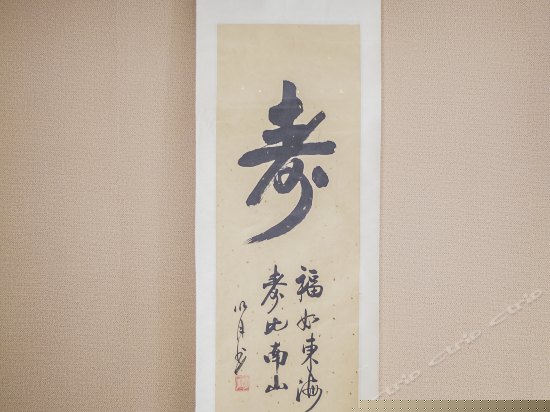 寿
福如東海
寿比南山
明月书
Ctrip Ctrip Ctrip